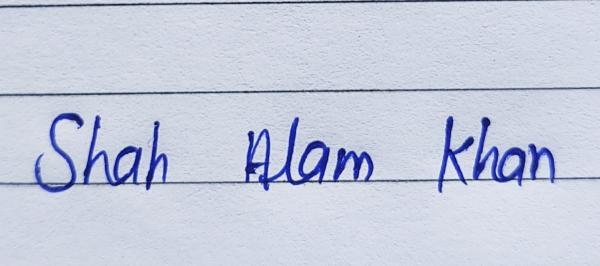 Shah Alam Khan